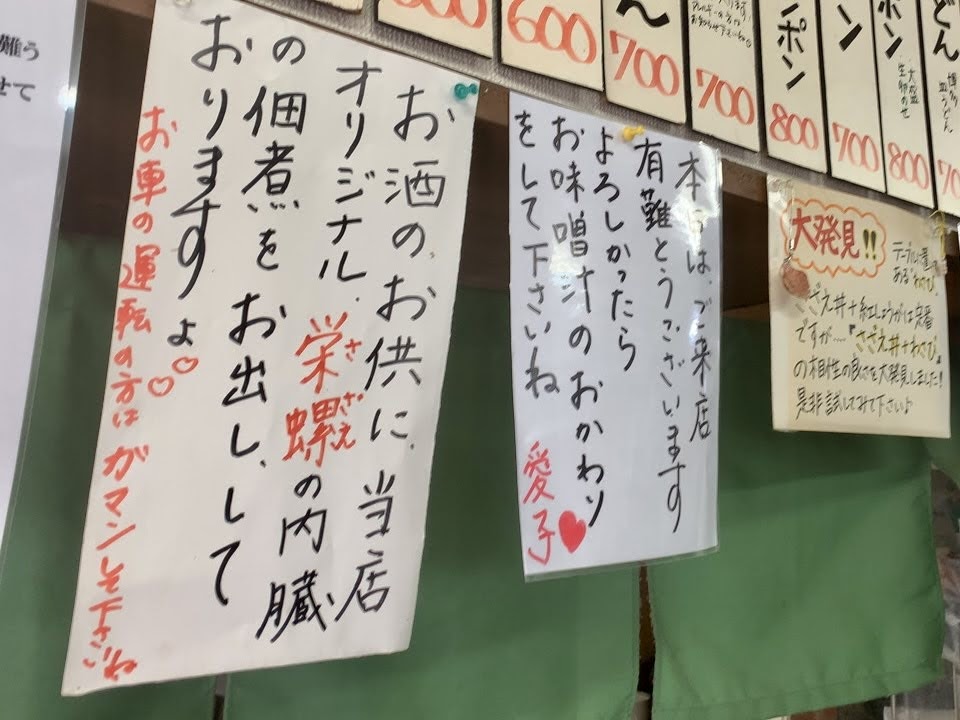 お酒のお供に、当店
オリジナル、栄螺の内臓
さざえ
の佃煮を お出し、して
おります ょ♡♡
お車の運転の方は ガマンして下さいね
本日は、ご来店
有難とうございます
よろしかったら
お味噌汁のおかわり
をして下さいね
愛子♥
大発見!!
テーブルに置いて
ある わさび。
さざえ丼+紅しょうがは定番
ですが…『さざえ丼+わさび』
の相性の良さを大発見しました!
是非試してみて下さい♪
難う
せて
600
ん
700
700
ポン
800
ン
700
ポン
大盛
生卵のせ
800
どん
皿うどん